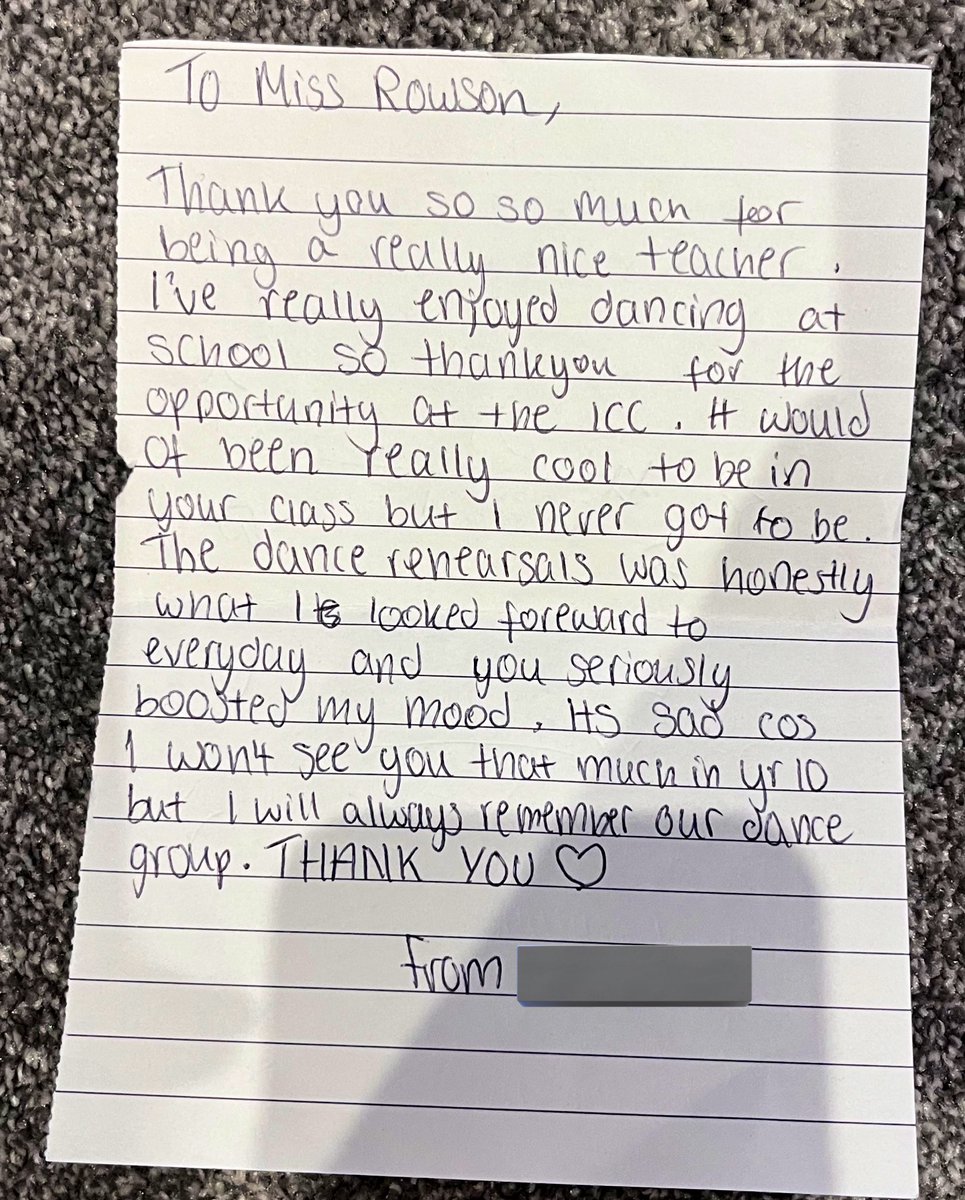 To Miss Rowson,
Thank you so so much for
being a really nice teacher.
I've really enjoyed dancing at
school so thankyou for the
opportunity at the ICC. It would
of been really cool to be in
your class but I never got to be.
The dance rehearsals was honestly
what I looked foreward to
everyday and you seriously
boosted my mood, its sad cos
I won't see you that much in yr 10
but I will always remember our dance
group. THANK YOU ♡
from